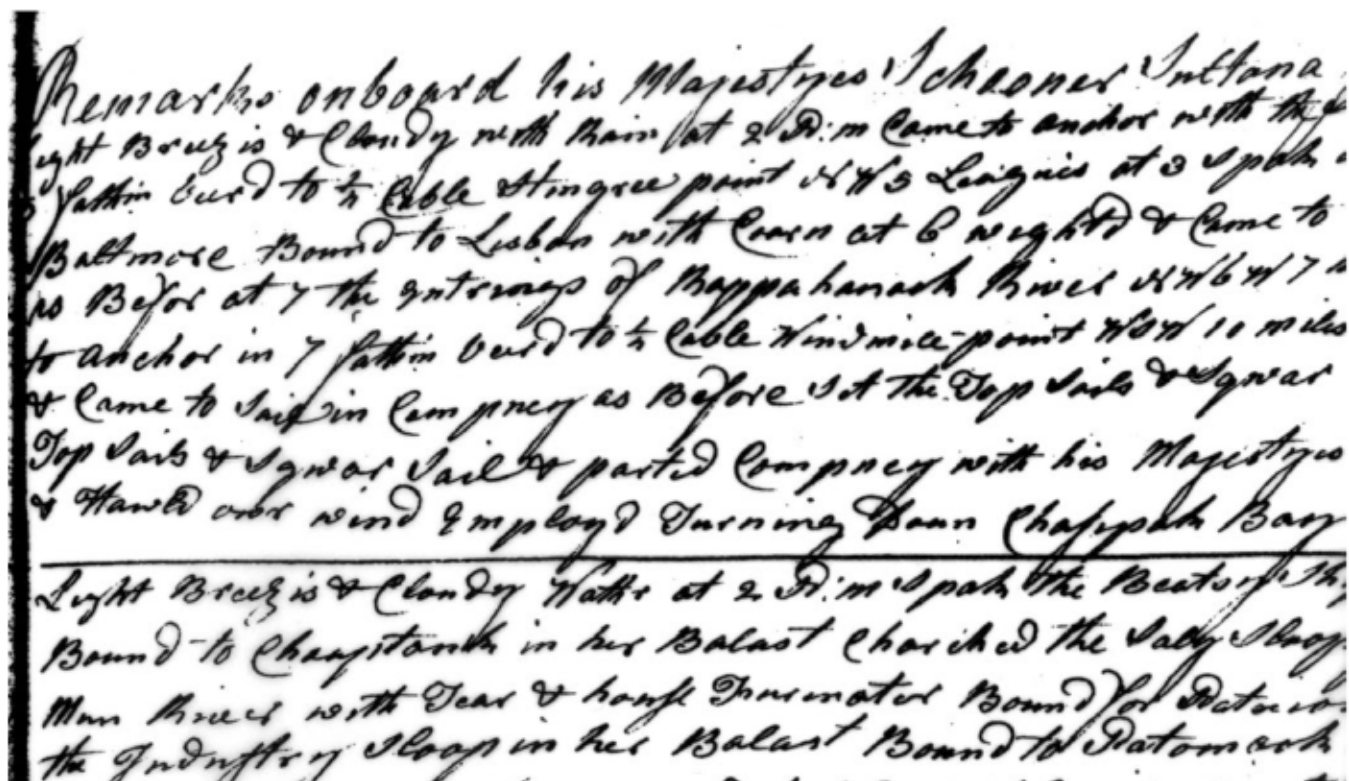 Remarks onboard his Majestyes Schooner Sultana
Light Breezis & Cloudy with Rain at 2 P:m Came to anchor with the
fathm veerd to ½ Cable Stingree point NW 3 Leagues at 3 Spoak
Baltimore Bound to Lisbon with Coarn at 6 weighd & Came to
as Befor at 7 the Entrings of Rappahanack River NWbW 7
to anchor in 7 fathm veerd to ½ Cable Windmill point WSW 10 miles
& Came to Sail in Compney as Before Set the Top Sails & Sqwar
Top Sails & Sqwar Sail & parted Compney with his Majestyes
& Hawld our wind Employd Turning Doun Chasepak Bay
Light Breezis & Cloudy Wathr at 2 P:m Spoak the Beatsy
Bound to in her Balast the Saly Sloop
River with Tear & house Furinator Bound for
the Industry Sloop in her Balast Bound to Patomack